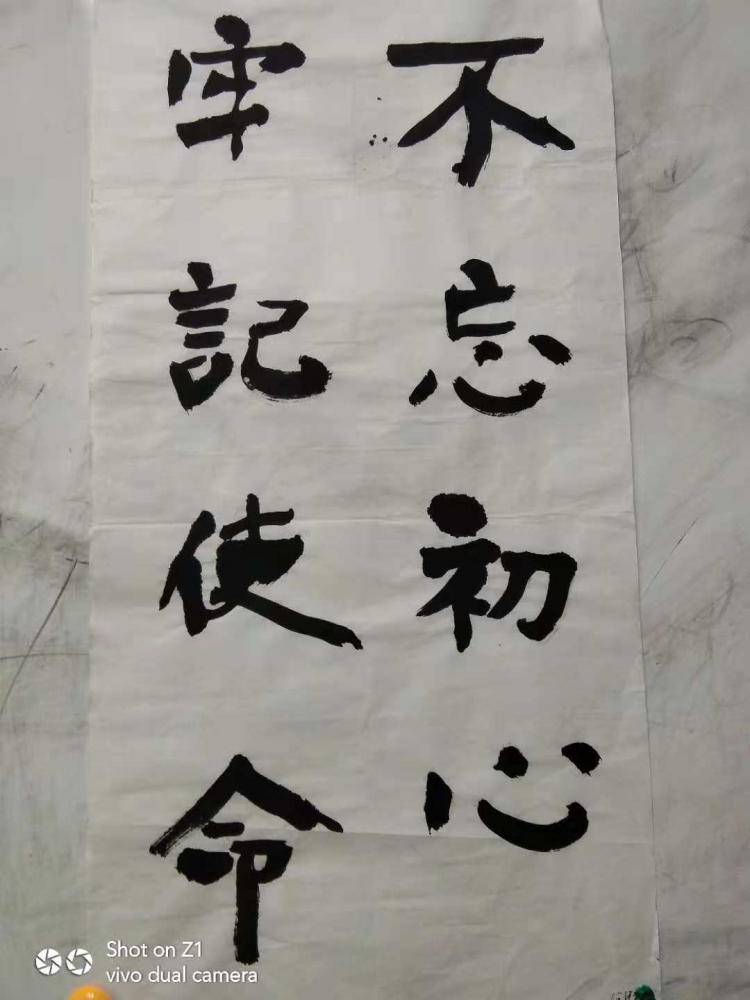 不忘初心
牢記使命
Shot on Z1
vivo dual camera